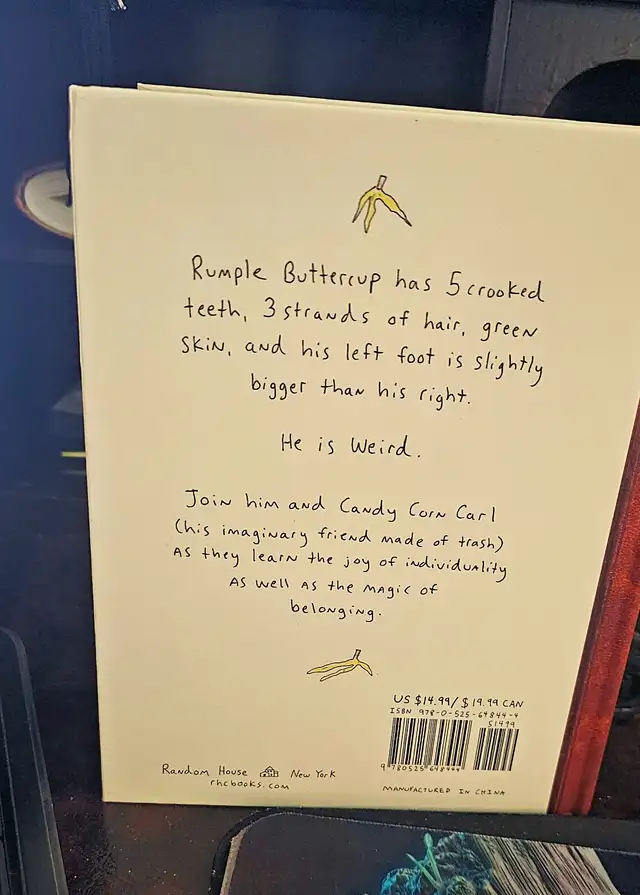 Rumple Buttercup has 5 crooked
teeth, 3 strands of hair, green
skin, and his left foot is slightly
bigger than his right.
He is weird.
Join him and Candy Corn Carl
(his imaginary friend made of trash)
as they learn the joy of individuality
as well as the magic of
belonging.
US $14.99/ $19.99 CAN
ISBN 978-0-525-64844-4
51499
9 780525 648444
Random House New York
rhcbooks.com
MANUFACTURED IN CHINA